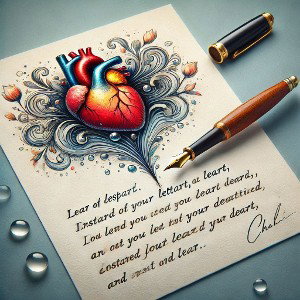 Lear of lespart.
Instard of your lettart, a leart,
Lou lend you ized you leart deard,,
an oet you let tal your deartized,
costared fout leazd yur deart,
and smnt ond lear..
Chali